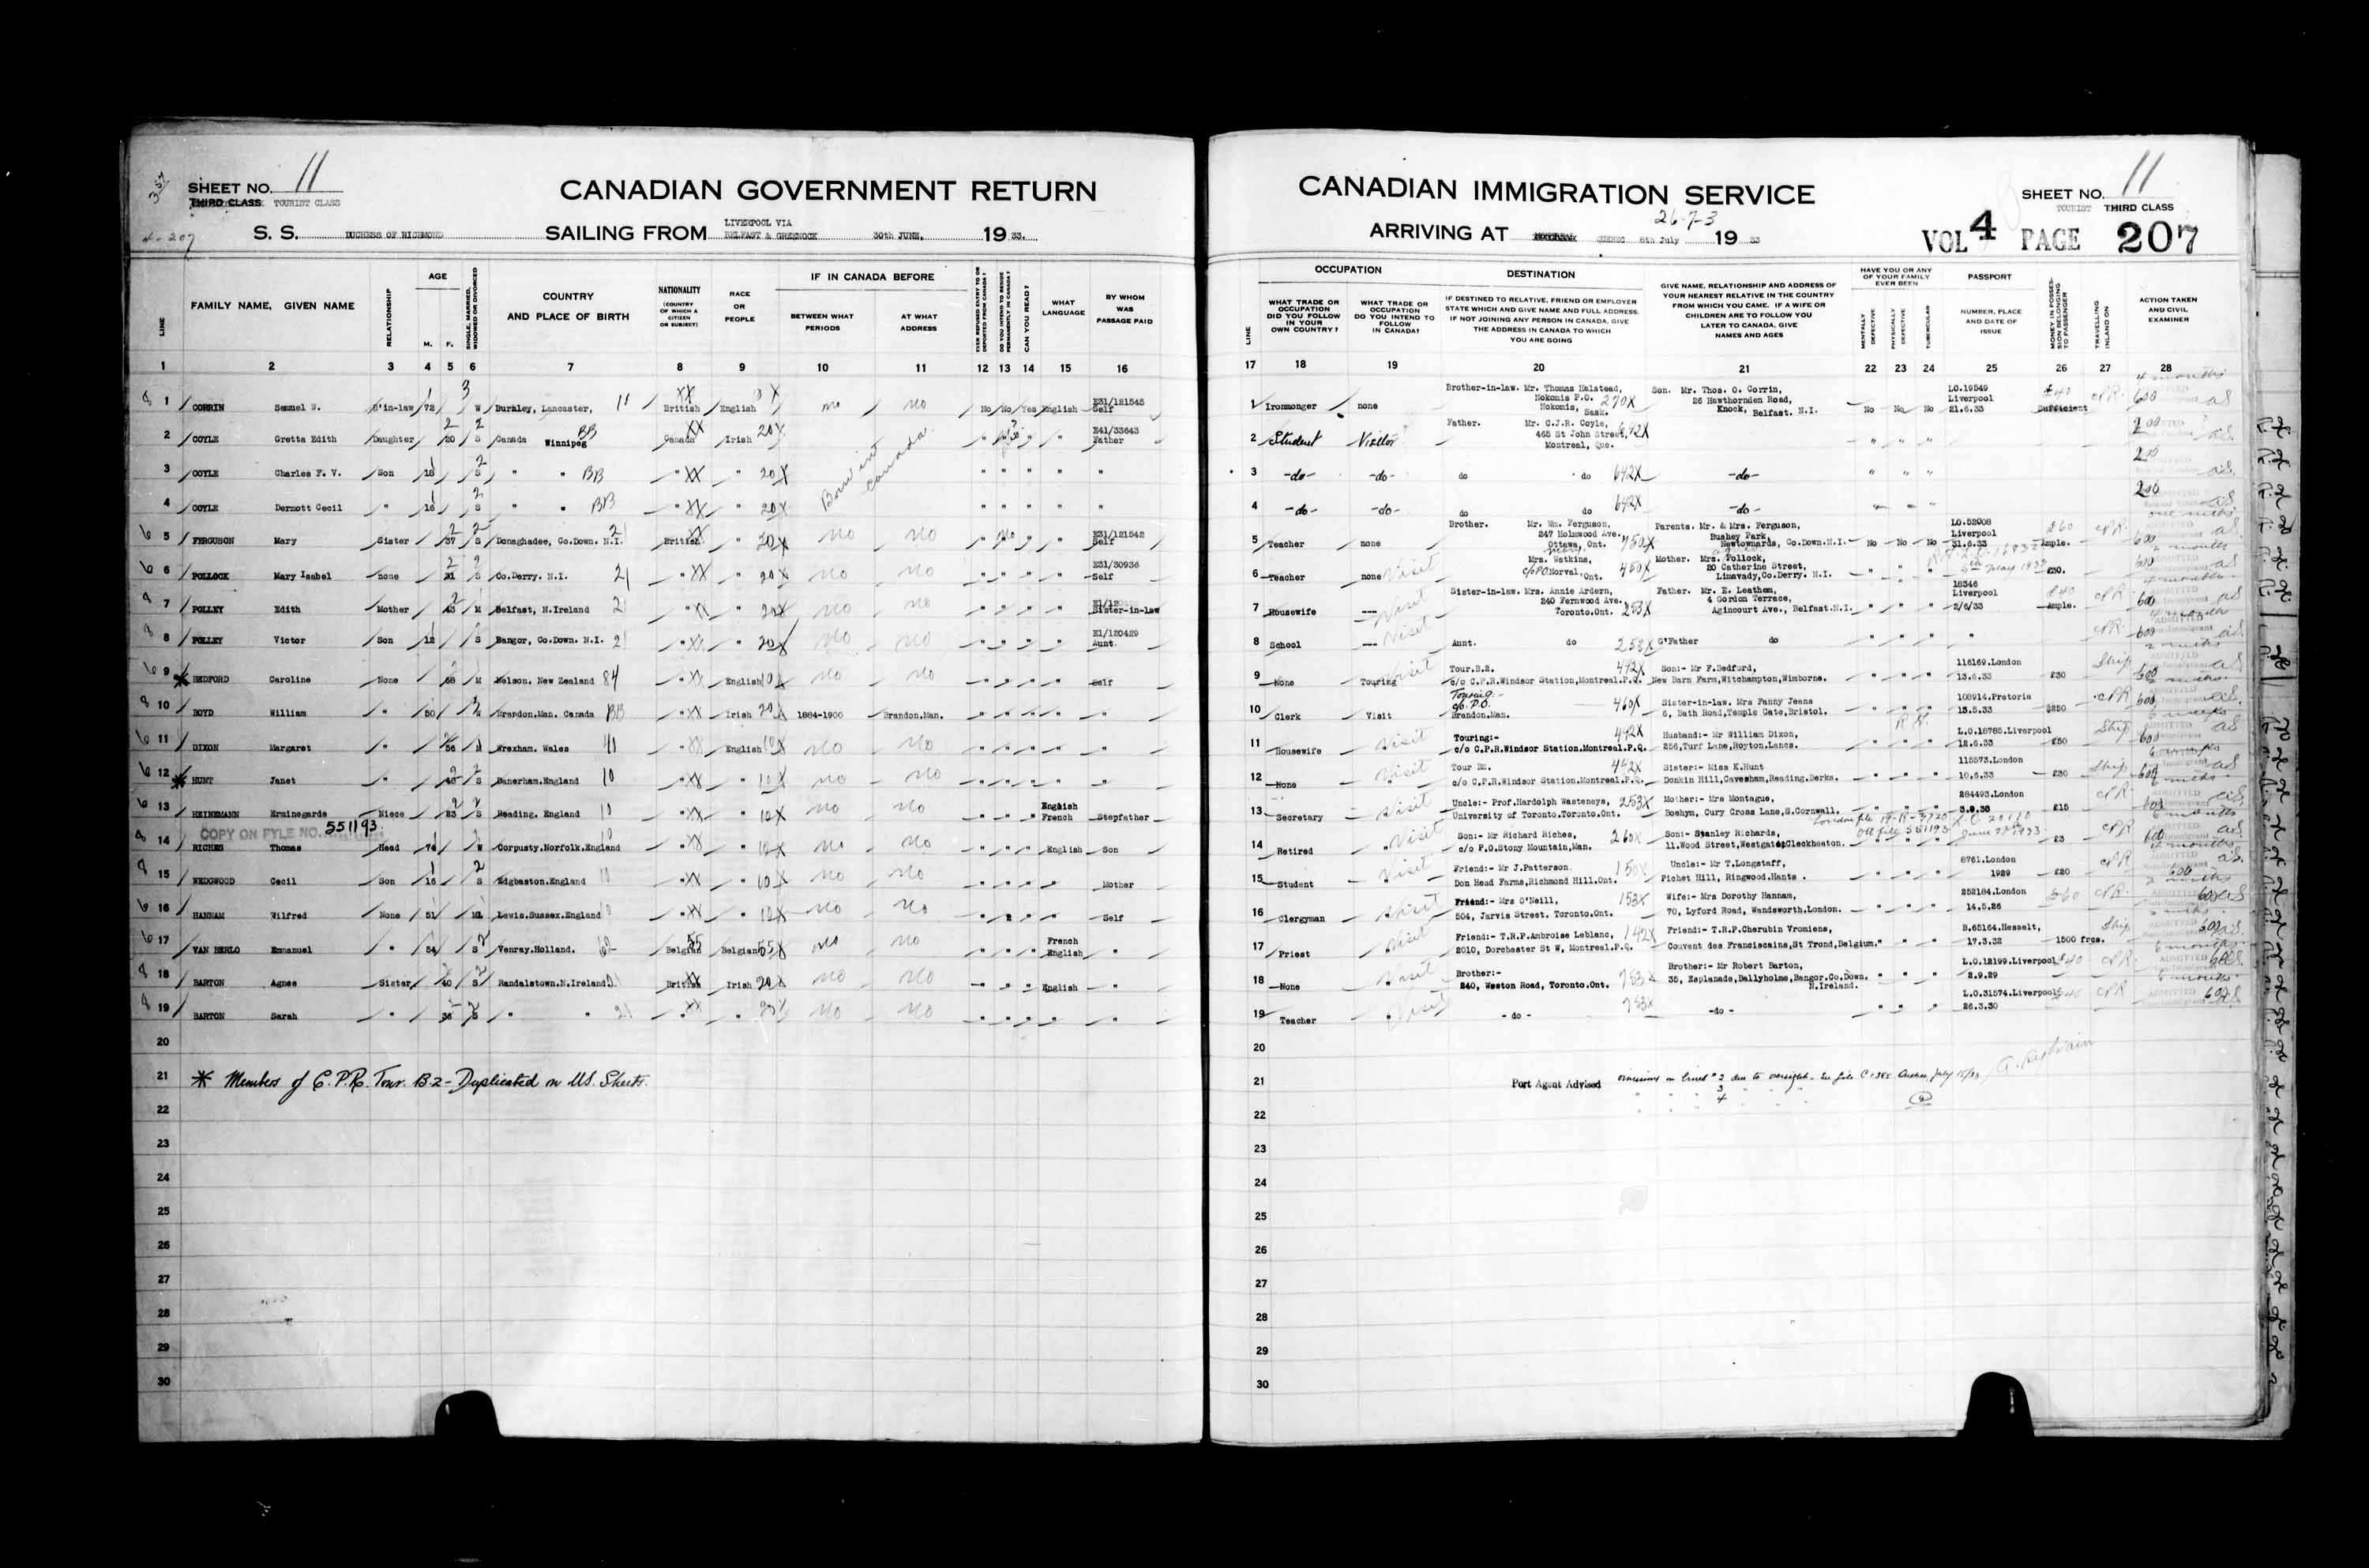 SHEET NO. 11
THIRD CLASS TOURIST CLASS
CANADIAN GOVERNMENT RETURN
S. S. DUCHESS OF RICHMOND SAILING FROM LIVERPOOL VIA BELFAST & GREENOCK 30th JUNE, 19 33.
LINE
FAMILY NAME, GIVEN NAME
RELATIONSHIP
AGE
M. F.
SINGLE, MARRIED, WIDOWED OR DIVORCED
COUNTRY AND PLACE OF BIRTH
NATIONALITY (COUNTRY OF WHICH A CITIZEN OR SUBJECT)
RACE OR PEOPLE
IF IN CANADA BEFORE
BETWEEN WHAT PERIODS
AT WHAT ADDRESS
EVER REFUSED ENTRY TO OR DEPORTED FROM CANADA?
DO YOU INTEND TO RESIDE PERMANENTLY IN CANADA?
CAN YOU READ?
WHAT LANGUAGE
BY WHOM WAS PASSAGE PAID
1 2 3 4 5 6 7 8 9 10 11 12 13 14 15 16
1 CORRIN Samuel W. B'in-law 72 W Burnley, Lancaster, British English no no No No Yes English E31/121545 Self
2 COYLE Gretta Edith Daughter 20 S Canada Winnipeg BB Canada Irish 20X E41/33643 Father
3 COYLE Charles F. V. Son 18 S " " BB " XX " 20X
Born in Canada
4 COYLE Dermott Cecil " 16 S " " BB " XX " 20X
5 FERGUSON Mary Sister 37 S Donaghadee, Co.Down. N.I. British " 20X No No E31/121542 Self
6 POLLOCK Mary Isabel none 21 S Co.Derry. N.I. 21 " XX " 20X no no E31/30936 Self
7 POLLEY Edith Mother 43 M Belfast, N.Ireland " XX " 20X no no Sister-in-law
8 POLLEY Victor Son 12 S Bangor, Co.Down. N.I. " XX " 20X no no E1/120429 Aunt.
9 BEDFORD Caroline None 58 M Nelson. New Zealand 84 " XX English 10X no no Self
10 BOYD William " 50 Brandon.Man. Canada BB " XX Irish 20X 1884-1900 Brandon.Man.
11 DIXON Margaret " 56 M Wrexham. Wales 41 " XX English 10X no no
12 HUNT Janet " S Danerham.England 10 " XX " 10X no no
13 HEINEMANN Erminegarde Niece 23 S Reading. England 10 " XX " 10X no no English French Stepfather
COPY ON FYLE NO. 551193
14 RICHES Thomas Head 74 W Corpusty.Norfolk.England 10 " XX " 10X no no English Son
15 WEDGWOOD Cecil Son 16 S Edgbaston.England 10 " XX " 10X no no Mother
16 HANNAM Wilfred None 51 M Lewis.Sussex.England " XX " 10X no no Self
17 VAN BERLO Emmanuel " 54 S Venray.Holland. Belgian 55 Belgian 55X no no French English
18 BARTON Agnes Sister 40 S Randalstown.N.Ireland British Irish 20X no no English
19 BARTON Sarah " 36 S " " 21 " XX " 20X no no
20
21 * Members of C.P.R. Tour. B2 - Duplicated on U.S. Sheets.
22
23
24
25
26
27
28
29
30
CANADIAN IMMIGRATION SERVICE
SHEET NO. 11
TOURIST THIRD CLASS
26-7-3
ARRIVING AT QUEBEC 6th July 19 33
VOL 4 PAGE 207
LINE
OCCUPATION
WHAT TRADE OR OCCUPATION DID YOU FOLLOW IN YOUR OWN COUNTRY?
WHAT TRADE OR OCCUPATION DO YOU INTEND TO FOLLOW IN CANADA?
DESTINATION
IF DESTINED TO RELATIVE, FRIEND OR EMPLOYER STATE WHICH AND GIVE NAME AND FULL ADDRESS. IF NOT JOINING ANY PERSON IN CANADA, GIVE THE ADDRESS IN CANADA TO WHICH YOU ARE GOING
GIVE NAME, RELATIONSHIP AND ADDRESS OF YOUR NEAREST RELATIVE IN THE COUNTRY FROM WHICH YOU CAME. IF A WIFE OR CHILDREN ARE TO FOLLOW YOU LATER TO CANADA, GIVE NAMES AND AGES
HAVE YOU OR ANY OF YOUR FAMILY EVER BEEN
MENTALLY DEFECTIVE
PHYSICALLY DEFECTIVE
TUBERCULAR
PASSPORT
NUMBER, PLACE AND DATE OF ISSUE
MONEY IN POSSESSION BELONGING TO PASSENGER
TRAVELLING INLAND ON
ACTION TAKEN AND CIVIL EXAMINER
17 18 19 20 21 22 23 24 25 26 27 28
1 Ironmonger none Brother-in-law. Mr. Thomas Halstead, Nokomis P.O. Nokomis, Sask. 270X Son. Mr. Thos. O. Corrin, 26 Hawthornden Road, Knock, Belfast. N.I. No No No LO.19549 Liverpool 21.6.33 £40 Sufficient CPR
2 Student Visitor Father. Mr. C.J.R. Coyle, 465 St John Street, Montreal, Que. 642X
3 -do- -do- do do 642X -do-
4 -do- -do- do do 642X -do-
5 Teacher none Brother. Mr. Wm. Ferguson, 247 Holmwood Ave. Ottawa, Ont. 450X Parents. Mr. & Mrs. Ferguson, Bushey Park, Newtownards, Co.Down.N.I. No No No LO.52008 Liverpool 31.6.33 £60 Ample. CPR
6 Teacher none Visit Mrs. Watkins, c/o P.O Norval, Ont. 450X Mother. Mrs. Pollock, 20 Catherine Street, Limavady, Co.Derry. N.I. £30.
7 Housewife --- Visit Sister-in-law. Mrs. Annie Ardern, 240 Fernwood Ave. Toronto.Ont. 253X Father. Mr. E. Leathem, 4 Gordon Terrace, Agincourt Ave., Belfast.N.I. 18346 Liverpool 2/6/33 £40 Ample. CPR
8 School --- Visit Aunt. do 253X G'Father do CPR
9 None Touring Visit Tour.B.2. c/o C.P.R.Windsor Station,Montreal.P.Q. 442X Son:- Mr F.Bedford, New Barn Farm,Witchampton,Wimborne. 116169.London 13.6.33 £30 Ship
10 Clerk Visit Touring- c/o P.O. Brandon.Man. 460X Sister-in-law. Mrs Fanny Jeans 6, Bath Road,Temple Gate,Bristol. 108914.Pretoria 15.5.33 £250 CPR
11 Housewife Visit Touring:- c/o C.P.R.Windsor Station.Montreal.P.Q. 442X Husband:- Mr William Dixon, 256,Turf Lane,Royton.Lancs. L.O.18785.Liverpool 12.6.33 £50 Ship
12 None Visit Tour B2. c/o C.P.R.Windsor Station.Montreal.P.Q. 442X Sister:- Miss K.Hunt Donkin Hill,Cavesham,Reading.Berks. 115573.London 10.6.33 £30 Ship
13 Secretary Visit Uncle:- Prof.Hardolph Wasteneys, University of Toronto.Toronto.Ont. 253X Mother:- Mrs Montague, Boehym, Cury Cross Lane,S.Cornwall. 284493.London 3.9.30 £15 CPR
14 Retired Visit Son:- Mr Richard Riches, c/o P.O.Stony Mountain,Man. 260X Son:- Stanley Richards, 11.Wood Street,Westgate,Cleckheaton. £3 CPR
15 Student Visit Friend:- Mr J.Patterson, Don Head Farms,Richmond Hill.Ont. 150X Uncle:- Mr T.Longstaff, Pichet Hill, Ringwood.Hants. 8761.London 1929 £20 CPR
16 Clergyman Visit Friend:- Mrs O'Neill, 504, Jarvis Street. Toronto.Ont. 153X Wife:- Mrs Dorothy Hannam, 70, Lyford Road, Wandsworth.London. 252184.London 14.5.26 £60 CPR
17 Priest Visit Friend:- T.R.P.Ambroise Leblanc, 2010, Dorchester St W, Montreal.P.Q. 142X Friend:- T.R.P.Cherubin Vromiens, Couvent des Franciscains,St Trond,Belgium. B.65164.Hesselt, 17.3.32 1500 frcs. Ship
18 None Visit Brother:- 240, Weston Road, Toronto.Ont. 753X Brother:- Mr Robert Barton, 35, Esplanade,Ballyholme,Bangor.Co.Down. N.Ireland. L.O.12199.Liverpool 2.9.29 £40 CPR
19 Teacher Visit - do - 753X -do - L.O.31574.Liverpool 26.3.30 CPR
20
21 Port Agent Advised omissions on lines # 2 due to oversight.
3
22 4
23
24
25
26
27
28
29
30